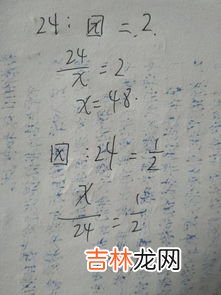 24 : x = 2.
24/x = 2
x = 48.
x : 24 = 1/2
x/24 = 1/2
吉林龙网